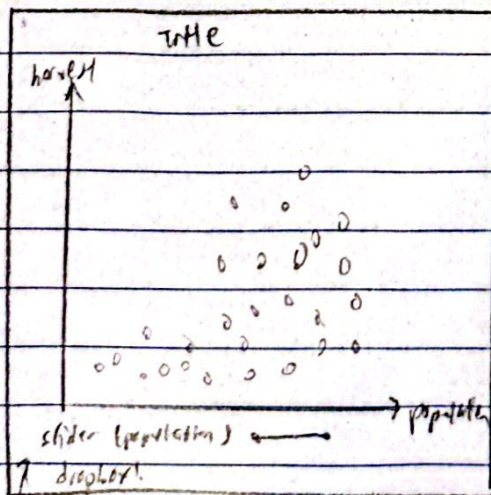 Title
harvest
population
slider (population)
dropbox1